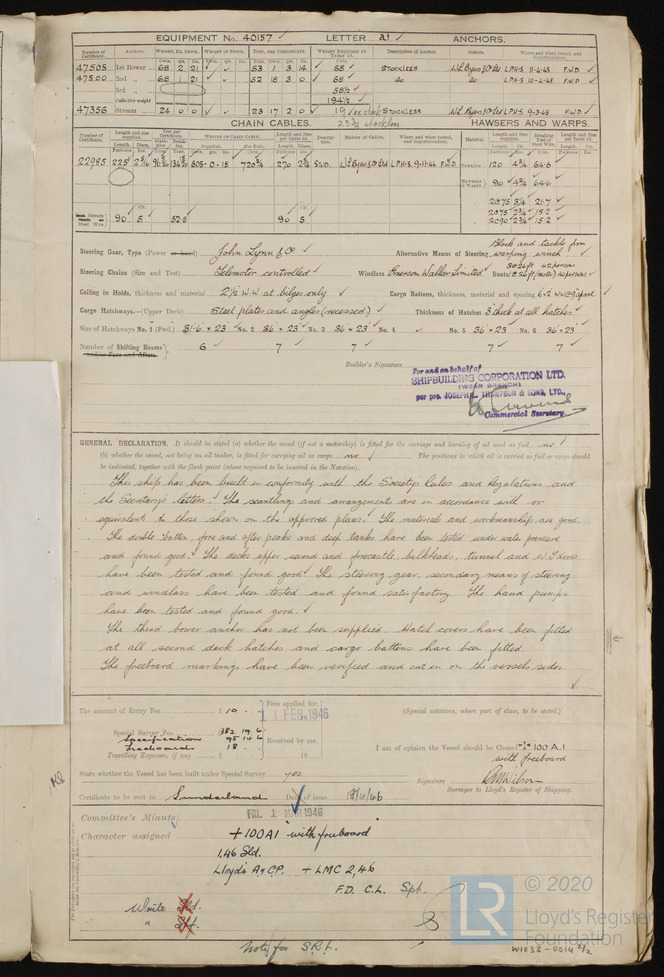 EQUIPMENT No. 40157 LETTER a† ANCHORS.
Number of Certificate. Anchors WEIGHT, EX. STOCK. WEIGHT OF STOCK. TEST, PER CERTIFICATE. WEIGHT REQUIRED BY TABLE 53. Description of Anchor. Makers. Where and when tested, and Superintendent.
47505 1st Bower 68 2 21 53 1 3 14 68 STOCKLESS L.P.H-S. 11-4-45 F.W.D.
47500 2nd 68 1 21 52 18 3 0 68 do do L.P.H-S. 10-4-45 F.W.D
3rd 58½
Collective weight 194½
47356 Stream 24 0 0 23 17 2 0 19 ex stock STOCKLESS L.P.H-S. 9-3-45 F.W.D
23¾ stockless
CHAIN CABLES. HAWSERS AND WARPS.
22985 225 605-0-18 720¾ 270 L.P.H-S. 9-11-44 F.W.D
120 4¾ 64·6
90 4¾ 64·6
2@75 3¼ 21·7
2@75 2¾ 15·2
2@90 2¾ 15·2
Stream 90 5 52·8 90 5
Steering Gear, Type (Power or hand) John Lynn & Co Alternative Means of Steering Block and tackle from warping winch
Steering Chains (Size and Test) Telemotor controlled Windlass Emerson Walker Limited Boats
Ceiling in Holds, thickness and material 2½ W.W at bilges only Cargo Battens, thickness, material and spacing 6×2 W.W. 9" apart
Cargo Hatchways.—(Upper Deck) Steel plates and angles (recessed) Thickness of Hatches 3" thick at all hatches
Size of Hatchways No. 1 (Fwd.) 31·6 × 23 No. 2 36 × 23 No. 3 36 × 23 No. 4 No. 5 36 × 23 No. 6 36 × 23
Number of Shifting Beams and/or Fore and Afters 6 7 7 7 7
Builder's Signature
For and on behalf of
SHIPBUILDING CORPORATION LTD.
(WEAR BRANCH)
per pro. JOSEPH L. THOMPSON & SONS, LTD.,
Commercial Secretary.
GENERAL DECLARATION. It should be stated (a) whether the vessel (if not a motorship) is fitted for the carriage and burning of oil used as fuel no
(b) whether the vessel, not being an oil tanker, is fitted for carrying oil as cargo no The positions in which oil is carried as fuel or cargo should
be indicated, together with the flash point (where required to be inserted in the Notation).
This ship has been built in conformity with the Society's Rules and Regulations and
the Secretary's letters. The scantlings and arrangements are in accordance with or
equivalent to those shown on the approved plans. The materials and workmanship are good.
The double bottom, fore and after peaks and deep tanks have been tested under water pressure
and found good. The decks upper second and forecastle, bulkheads, tunnel and W.T doors
have been tested and found good. The steering gear, secondary means of steering
and windlass have been tested and found satisfactory. The hand pumps
have been tested and found good.
The third bower anchor has not been supplied. Hatch covers have been fitted
at all second deck hatches and cargo battens have been fitted.
The freeboard markings have been verified and cut in on the vessels sides.
The amount of Entry Fee £ 10 Fees applied for,
11 FEB 1946
(Special notations, where part of class, to be stated.)
Special Survey Fee 382 19 6
Specification 95 14 6 Received by me,
Freeboard 18
Travelling Expenses, if any £ 19
I am of opinion the Vessel should be Classed +100A.1
with freeboard
State whether the Vessel has been built under Special Survey yes
Signature
Surveyor to Lloyd's Register of Shipping.
Certificate to be sent to Sunderland Date of issue 18/4/46
Committee's Minute FRI. 1 MAR 1946
Character assigned +100A1 "with freeboard"
1,46 Sld.
Lloyd's A & C.P. + LMC 2,46
F.D. C.L. Spt.
Write Sld.
" Spt.
Notify for S.R.L.
© 2020
LR Lloyd's Register
Foundation
W1038-0014 2/2